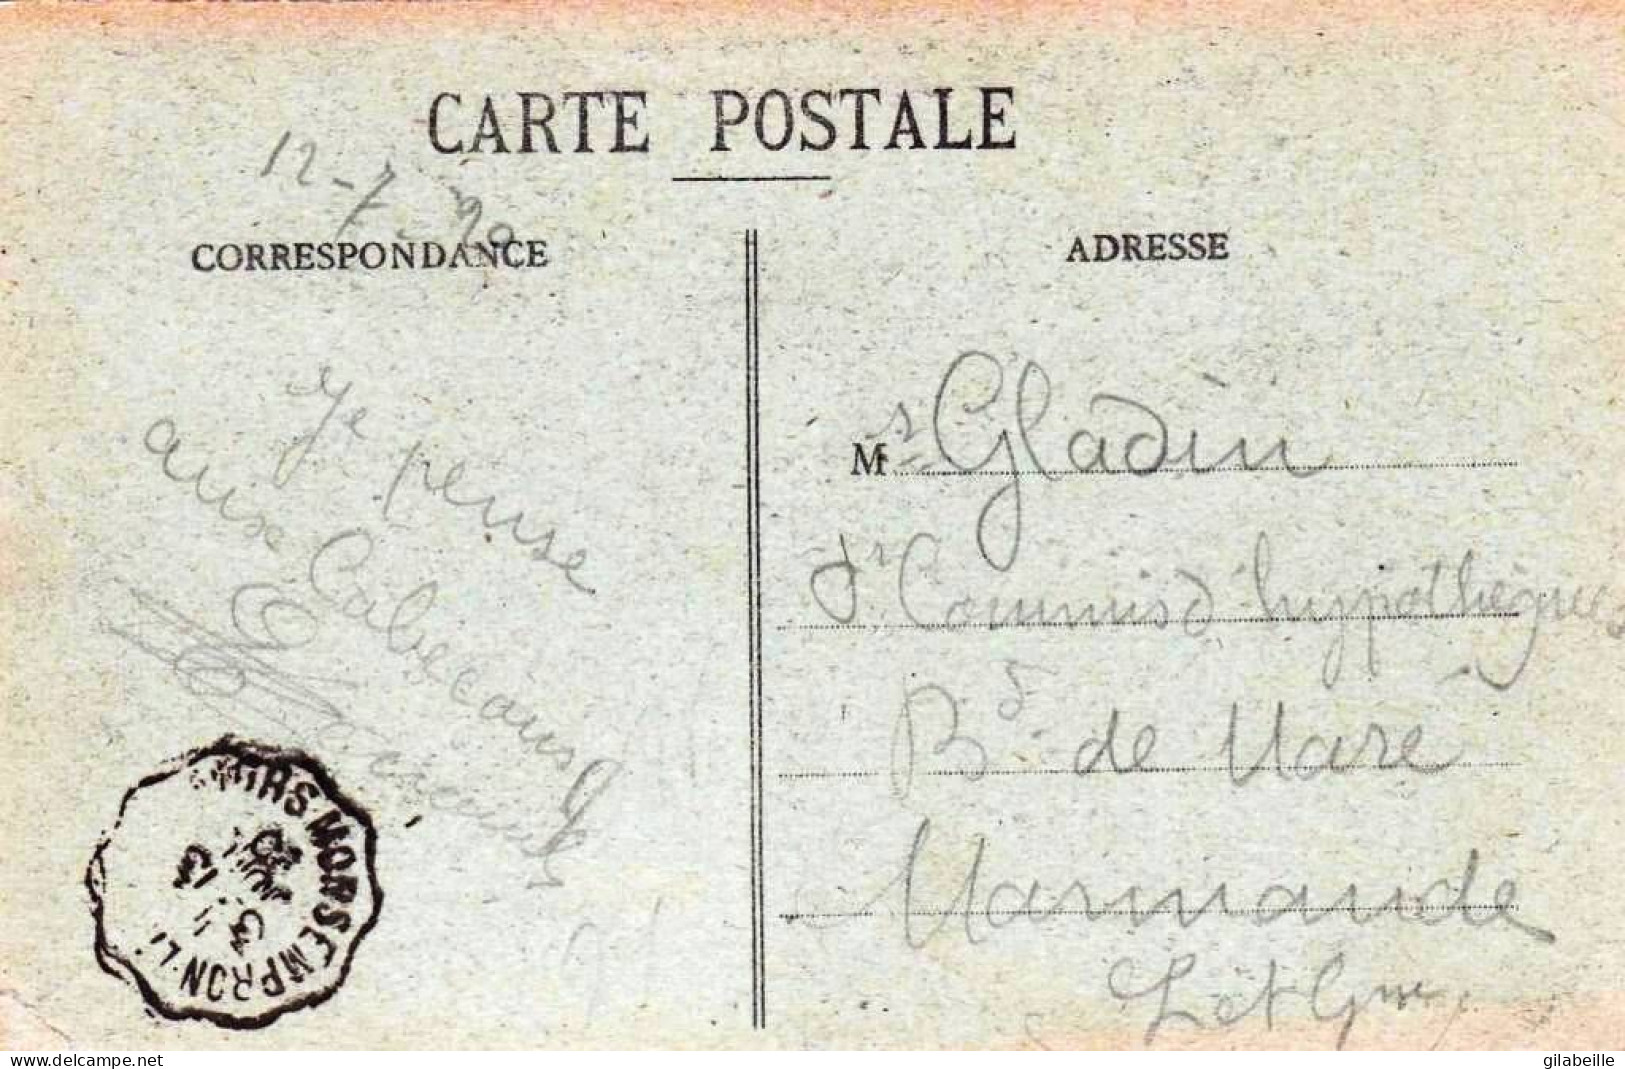 CARTE POSTALE
12-7-20
CORRESPONDANCE
ADRESSE
Je pense
aux Cabecous
Mr Gladin
Commis d'hypothèques
Bd de Maré
Marmande
Let Gne
MORSEMPRON-LI
www.delcampe.net
gilabeille